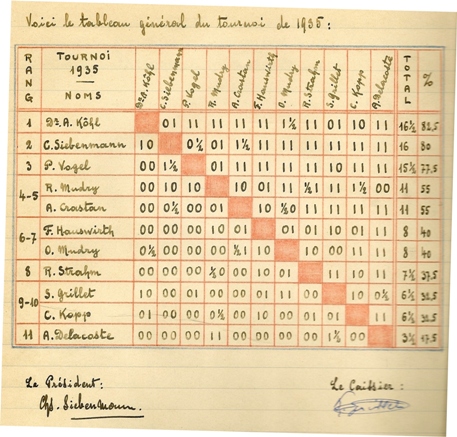 Voici le tableau général du tournoi de 1935 :
RANG TOURNOI 1935 NOMS Dr A. Köhl C. Siebenmann P. Vogel R. Mudry A. Crastan F. Hauswirth O. Mudry R. Strahm S. Grillet C. Kopp A. Delacoste TOTAL %
1 Dr. A. Köhl 01 11 11 11 11 1½ 11 01 10 11 16½ 82.5
2 C. Siebenmann 10 0½ 01 1½ 11 11 11 11 11 11 16 80
3 P. Vogel 00 1½ 01 11 11 11 11 10 11 11 15½ 77.5
4-5 R. Mudry 00 10 10 10 01 11 ½1 11 1½ 00 11 55
A. Crastan 00 0½ 00 01 10 ½0 11 11 11 11 11 55
6-7 F. Hauswirth 00 00 00 10 01 01 01 10 01 11 8 40
O. Mudry 0½ 00 00 00 ½1 10 10 00 11 11 8 40
8 R. Strahm 00 00 00 ½0 00 10 01 11 10 11 7½ 37.5
9-10 S. Grillet 10 00 01 00 00 01 11 00 10 0½ 6½ 32.5
C. Kopp 01 00 00 0½ 00 10 00 01 01 11 6½ 32.5
11 A. Delacoste 00 00 00 11 00 00 00 00 1½ 00 3½ 17.5
Le Président : Le Caissier :
Chs. Siebenmann.